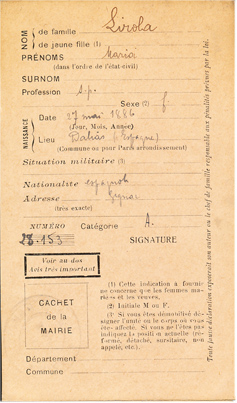 NOM
de famille Sirola
de jeune fille (1)
PRÉNOMS Maria
(dans l'ordre de l'état-civil)
SURNOM
Profession s.p.
Sexe (2) f.
NAISSANCE
Date 27 mai 1886
(Jour, Mois, Année)
Lieu Dalias (Espagne)
(Commune ou pour Paris arrondissement)
Situation militaire (3)
Nationalité espagnole
Adresse
(très exacte)
NUMÉRO Catégorie A.
153 SIGNATURE
Voir au dos
Avis très important
CACHET
de la
MAIRIE
(1) Cette indication à fournir
ne concerne que les femmes ma-
riées et les veuves.
(2) Initiale M ou F.
(3) Si vous êtes démobilisé dé-
signer l'unité ou le corps où vous
êtes affecté. Si vous ne l'êtes pas
indiquez la position actuelle (ré-
formé, détaché, sursitaire, non
appelé, etc.).
Département
Commune
Toute fausse déclaration exposerait son auteur ou le chef de famille responsable aux pénalités prévues par la loi.